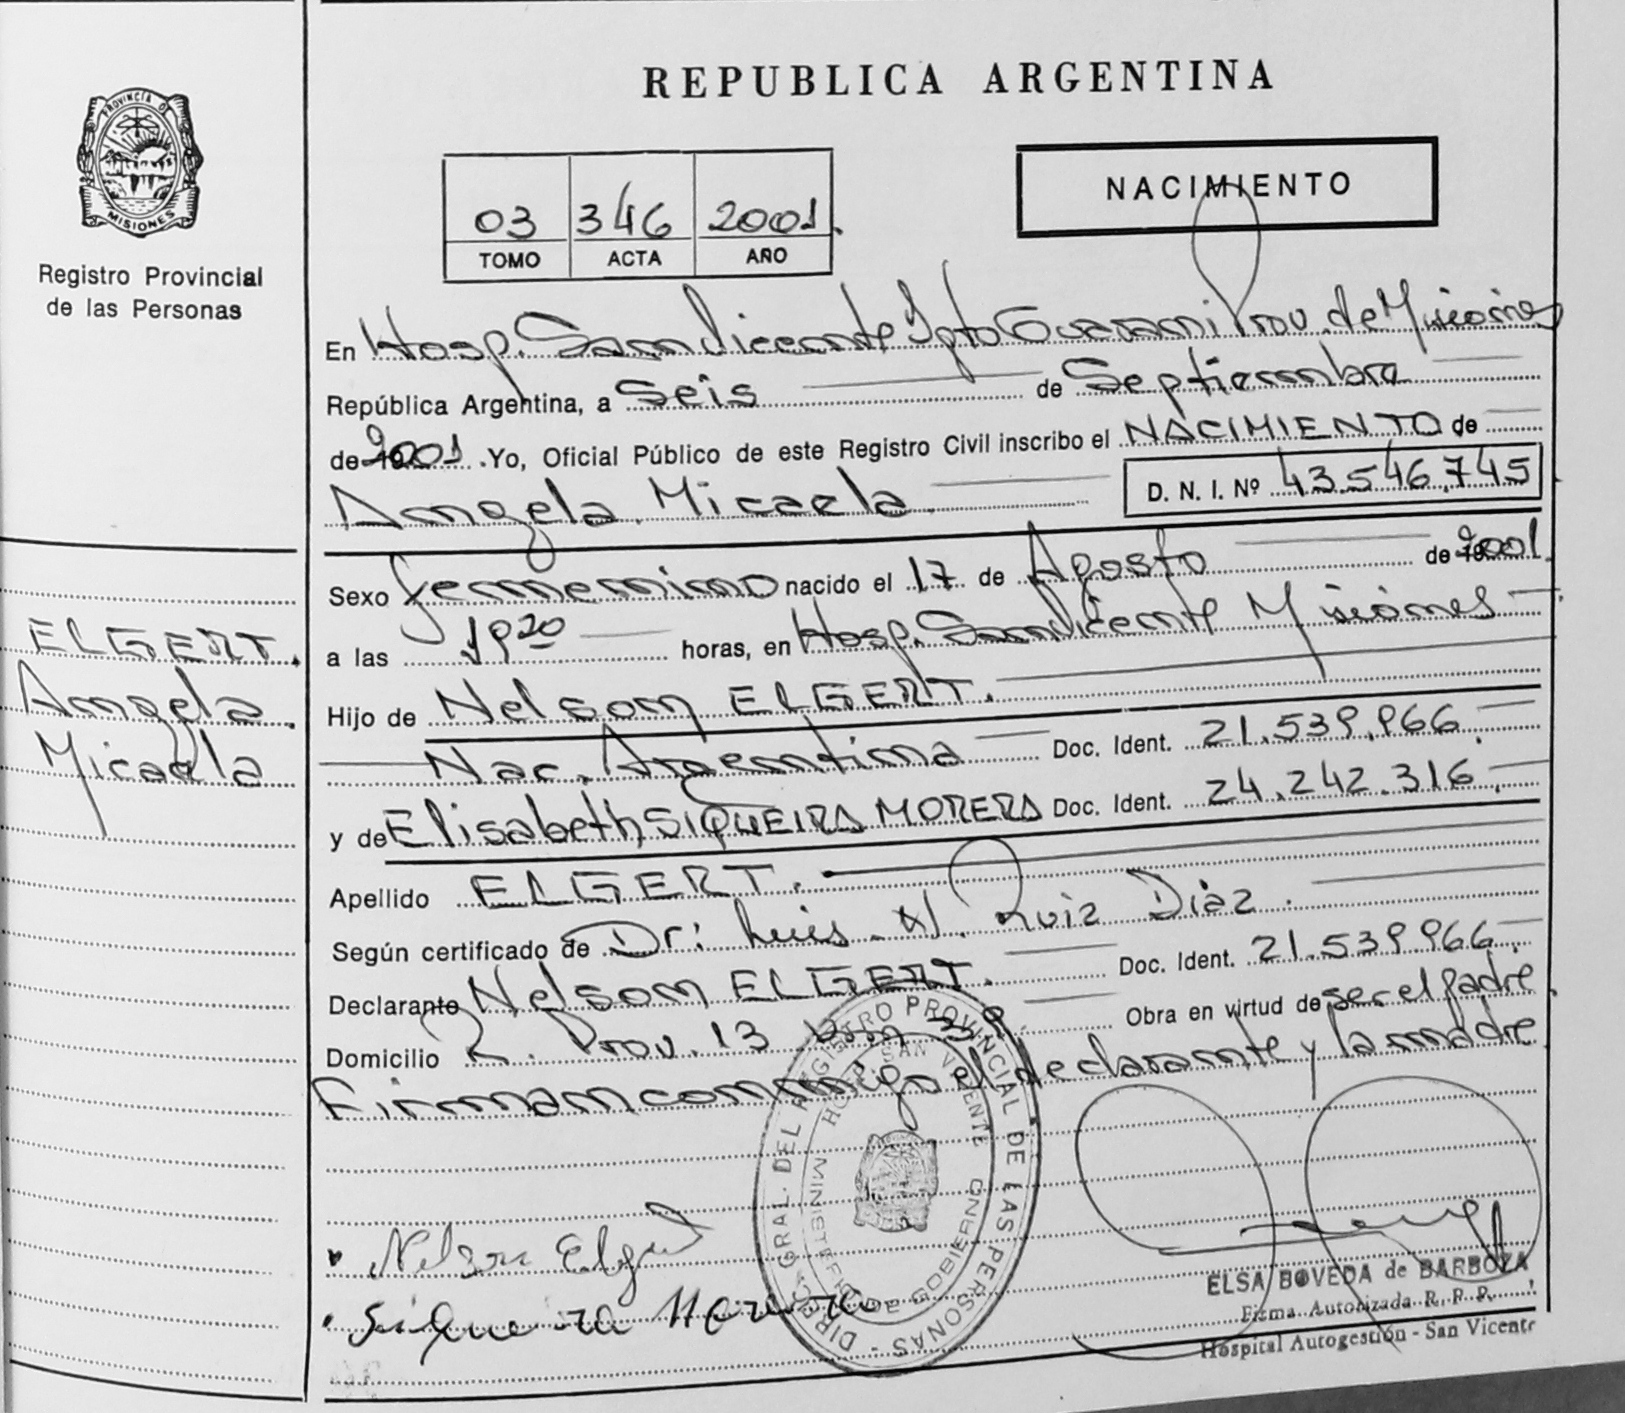 REPUBLICA ARGENTINA
PROVINCIA DE
MISIONES
Registro Provincial
de las Personas
NACIMIENTO
03 346 2001.
TOMO ACTA AÑO
En Hosp. San Vicente Dpto Guarani Prov. de Misiones
República Argentina, a Seis de Septiembre
de 2001. Yo, Oficial Público de este Registro Civil inscribo el NACIMIENTO de
Angela Micaela. D. N. I. Nº 43.546.745
Sexo femenino nacido el 17 de Agosto de 2001.
a las 19 20 horas, en Hosp. San Vicente Misiones
Hijo de Nelson ELGERT.
Nac. Argentina Doc. Ident. 21.539.966.
y de Elisabeth SIQUEIRA MORERA Doc. Ident. 24.242.316.
Apellido ELGERT.
Según certificado de Dr: Luis N. Ruiz Diaz.
Doc. Ident. 21.539.966.
Declarante Nelson ELGERT.
Obra en virtud de ser el padre.
Domicilio R. Prov. 13 Km 39.
Firman conmigo el declarante y la madre
ELGERT.
Angela.
Micaela
Nelson Elgert
Siqueira Morera
DIRECC. GRAL. DEL REGISTRO PROVINCIAL DE LAS PERSONAS -
MINISTERIO DE GOBIERNO
HOSP. SAN VICENTE
ELSA BOVEDA de BARBOZA
Firma Autorizada R. P. P.
Hospital Autogestión - San Vicente